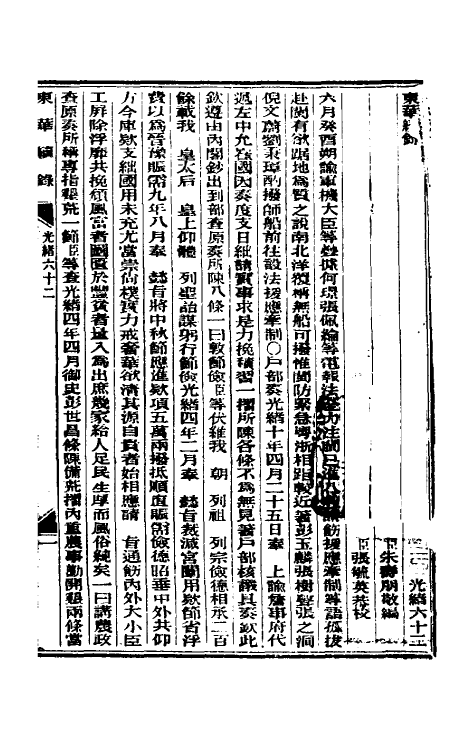 東華續錄
光緒六十二
臣朱壽朋敬編
臣張毓英恭校
六月癸酉朔諭軍機大臣等疊據何璟張佩綸等電報法
赴閩有欲踞地為質之說南北洋覆稱無船可撥惟閩防緊急粵浙相距較近著彭玉麟張樹聲張之洞
倪文蔚劉秉璋酌撥師船前往設法援應牽制〇戶部奏光緒十年四月二十五日奉 上諭詹事府代
遞左中允崔國因奏度支日絀請實事求是力挽積習一摺所陳各條不為無見著戶部核議具奏欽此
欽遵由內閣鈔出到部查原奏所陳八條一曰敦節儉臣等伏維我 朝 列祖 列宗儉德相承二百
餘載我 皇太后 皇上仰體 列聖詒謀躬行節儉光緒四年二月奉 懿旨裁減宮闈用款節省浮
費以為晉豫賑需九年八月奉 懿旨將中秋節應進款項五萬兩撥抵順直賑需儉德昭垂中外共仰
方今庫款支絀國用未充尤當崇尚樸實力戒奢華欲清其源自貴者始相應請 旨通飭內外大小臣
工屏除浮靡共挽頹風富者圖匱於豐貧者量入為出庶幾家給人足民生厚而風俗純矣一曰講農政
查原奏所稱專指墾荒一節臣等查光緒四年四月御史彭世昌條陳備荒摺內重農事勤開墾兩條當
東華續錄
光緒六十二